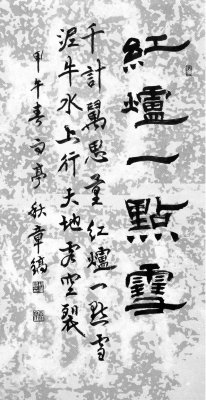 紅爐一點雪
千計萬思量紅爐一點雪
泥牛水上行大地虛空裂
甲午春 亭 秋章鎬